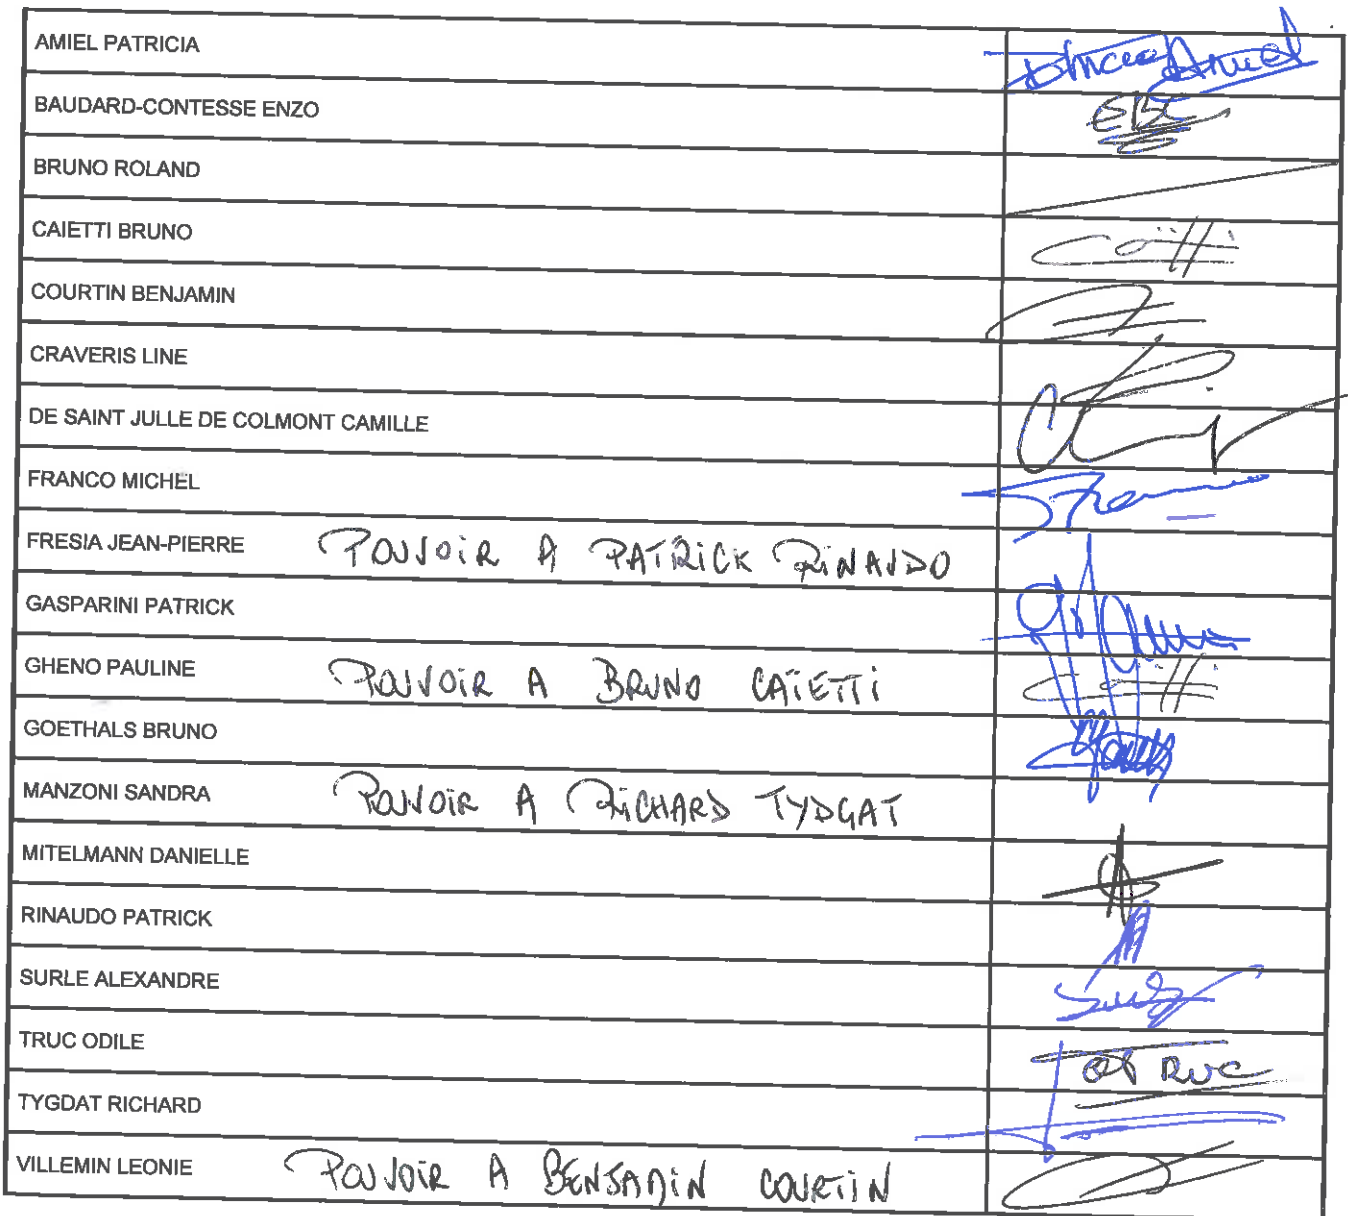 AMIEL PATRICIA
BAUDARD-CONTESSE ENZO EBC
BRUNO ROLAND
CAIETTI BRUNO
COURTIN BENJAMIN
CRAVERIS LINE
DE SAINT JULLE DE COLMONT CAMILLE
FRANCO MICHEL
FRESIA JEAN-PIERRE POUVOIR A PATRICK RINAUDO
GASPARINI PATRICK
GHENO PAULINE POUVOIR A BRUNO CAIETTI
GOETHALS BRUNO
MANZONI SANDRA POUVOIR A RICHARD TYDGAT
MITELMANN DANIELLE
RINAUDO PATRICK
SURLE ALEXANDRE
TRUC ODILE
TYGDAT RICHARD
VILLEMIN LEONIE POUVOIR A BENJAMIN COURTIN